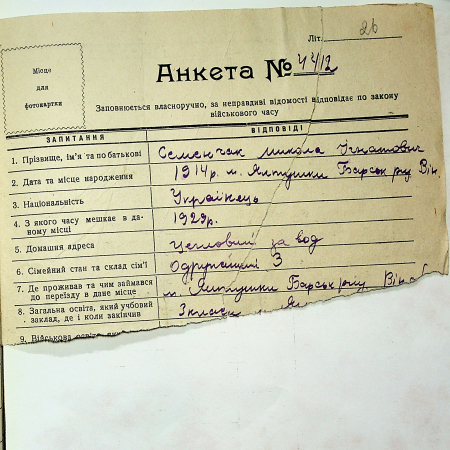 Літ. 26
Місце
для
фотокартки
Анкета № 4412
Заповнюється власноручно, за неправдиві відомості відповідає по закону
військового часу
ЗАПИТАННЯ ВІДПОВІДІ
1. Прізвище, ім'я та по батькові Семенчак Микола Ігнатович
2. Дата та місце народження 1914р. м. Ялтушки Барськ р-ну Він
3. Національність Українець
4. З якого часу мешкає в да-
ному місці 1929р.
5. Домашня адреса Цегловий завод
6. Сімейний стан та склад сім'ї Одружений 3
7. Де проживав та чим займався
до переїзду в дане місце м. Ялтушки Барськ р-ну Він
8. Загальна освіта, який учбовий
заклад, де і коли закінчив 3 класи
9. Військова освіта